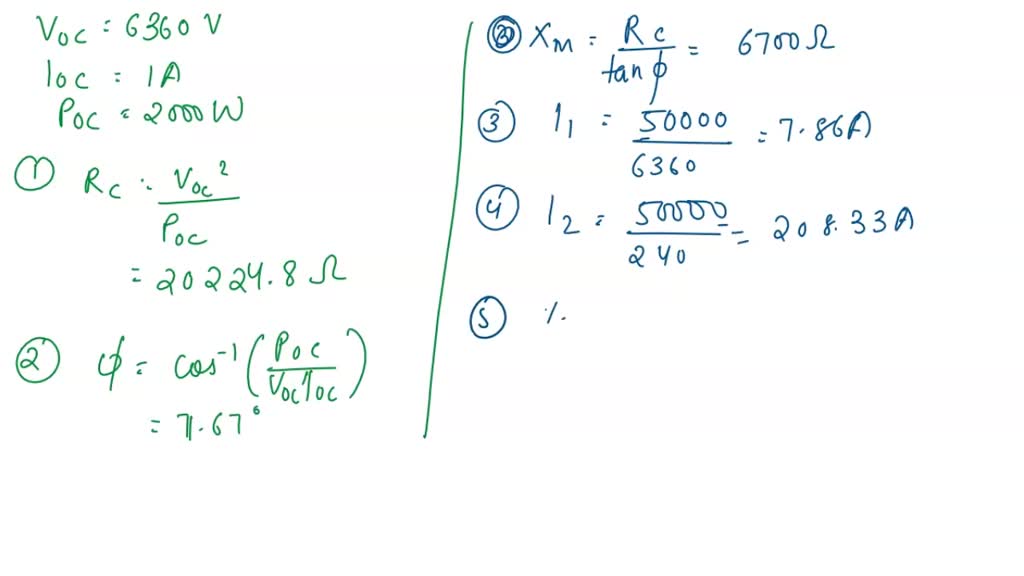 VOC = 6360 V
IOC = 1A
POC = 2000 W
① RC = VOC² / POC
= 20224.8 Ω
② φ = cos⁻¹ (POC / VOC IOC)
= 71.67°
③ XM = RC / tan φ = 6700 Ω
③ I1 = 50000 / 6360 = 7.86A
④ I2 = 50000 / 240 = 208.33A
⑤ %